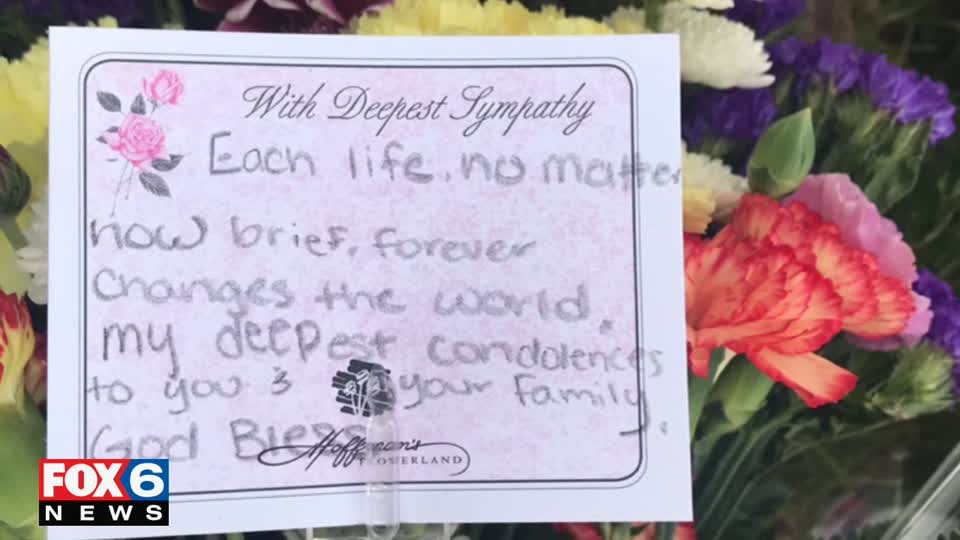 With Deepest Sympathy
Each life, no matter
how brief, forever
changes the world.
my deepest condolences
to you & your family.
God Bless
Hoffman's
FLOWERLAND
FOX 6
NEWS